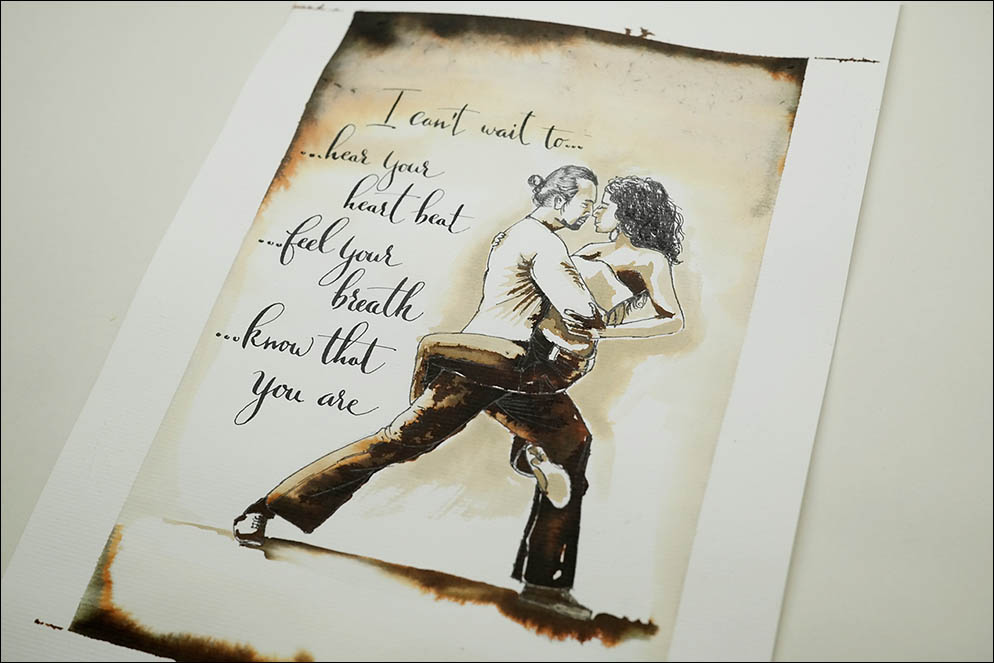 I can't wait to...
...hear your
heart beat
...feel your
breath
...know that
you are